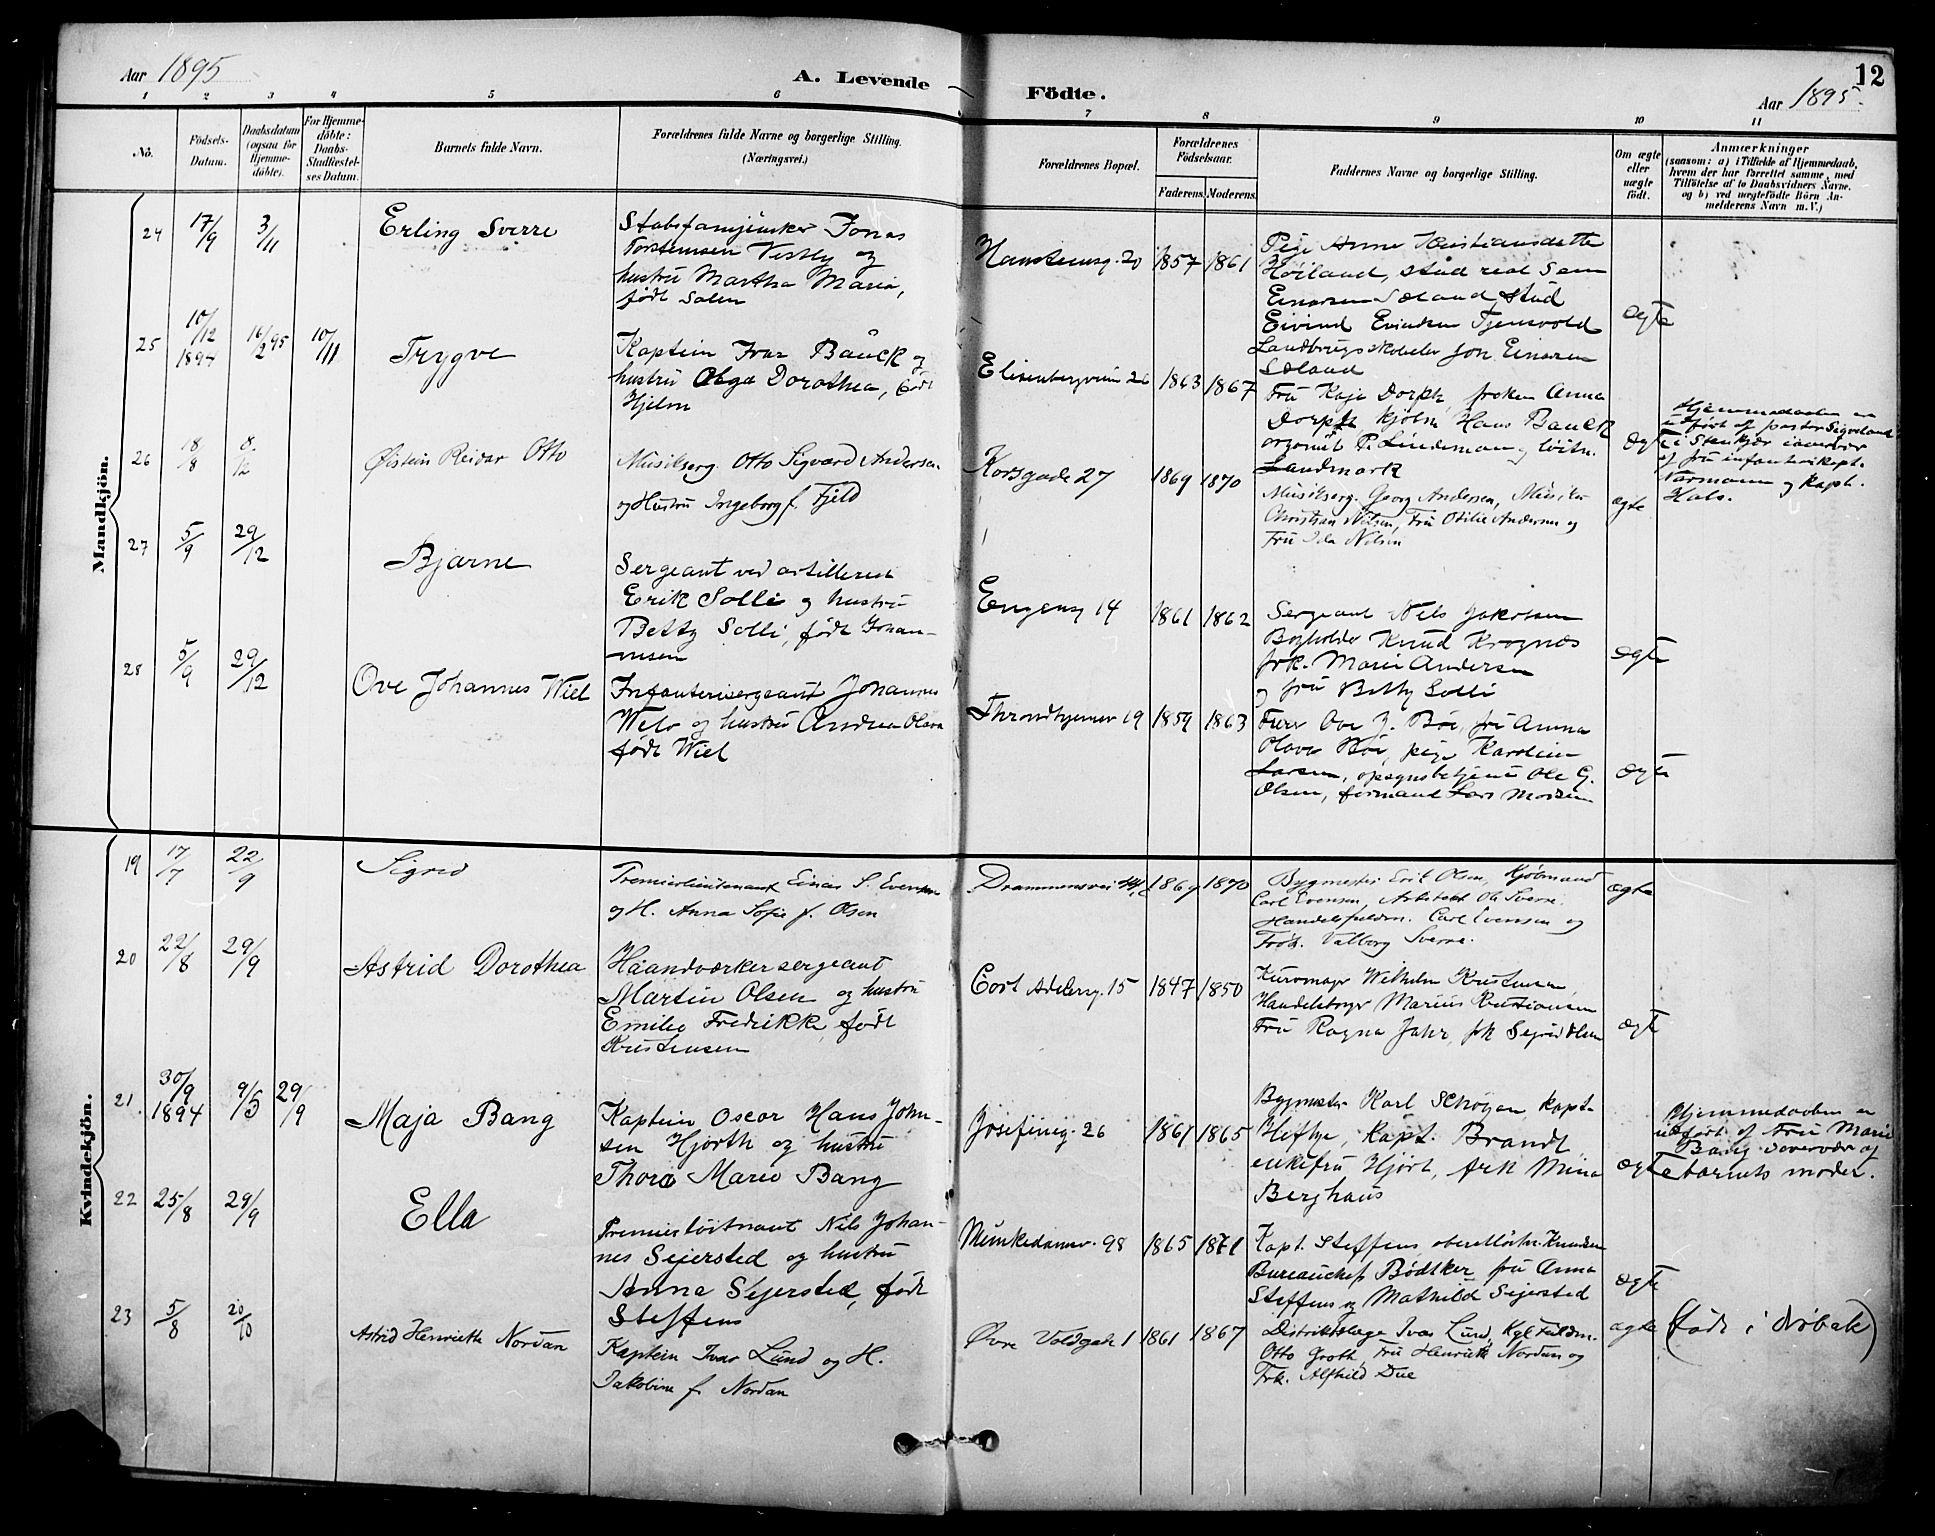 Aar 1895
A. Levende
Födte.
Aar 1895
12
1 2 3 4 5 6 7 8 9 10 11
No.
Födsels-
Datum.
Daabsdatum
(ogsaa for
Hjemme-
döbte).
For Hjemme-
döbte:
Daabs-
Stadfæstel-
ses Datum.
Barnets fulde Navn.
Forældrenes fulde Navne og borgerlige Stilling.
(Næringsvei.)
Forældrenes Bopæl.
Forældrenes
Födselsaar.
Faderens. Moderens.
Faddernes Navne og borgerlige Stilling.
Om ægte
eller
uægte
födt.
Anmærkninger
(saasom: a) i Tilfælde af Hjemmedaab,
hvem der har forrettet samme, med
Tilföielse af to Daabsvidners Navne,
og b) ved uægtefödte Börn An-
melderens Navn m. V.)
Mandkjön.
24 17/9 3/11 Erling Sverre
Jonas
Torstensen Vestly og
hustru Martha Maria,
født Salen
20 1857 1861
Pige Anne Kristiansdatter
Høiland, stud real Sem
Einarsen Sæland, Stud
Eivind Evindsen Tjensvold
Landbrugsskoleelev Jon Einarsen
Sæland
ægte
25 10/12 1894 16/2 95 10/11 Trygve
Kaptein Ivar Bauck og
hustru Olga Dorothea, født
Hjelm
Elisenbergveien 26 1863 1867
Fru Kaja Dorph, frøken Anna
Dorph, kjøbm Hans Bauck
organist P. Lindeman og løitn.
Landmark
ægte
Hjemmedaaben er
udført af pastor Sigveland
i Stenkjær
af fru infanterikapt.
Normann og kapt.
Hals.
26 18/8 8/12 Øistein Reidar Otto
Musikserg. Otto Sigvard Andersen
og Hustru Ingeborg f. Fjeld
Korsgade 27 1869 1870
Musikserg. Georg Andersen, Musiker
Christian Nilsen, Fru Otilie Andersen og
Fru Ida Nilsen
ægte
27 5/9 29/12 Bjarne
Sergeant ved artilleriet
Erik Solli og hustru
Betty Solli, født Johan-
nesen
Engensg 14 1861 1862
Sergeant Nils Jakobsen
Bogholder Knud Krognæs
frk. Marie Andersen
og fru Betty Solli
ægte
28 5/9 29/12 Ove Johannes Wiel
Infanterisergeant Johannes
og hustru Andrea Olava
født Wiel
Throndhjemsv 19 1859 1863
Furer Ove J. Bøe, fru Anna
Olava Bøe, pige Karoline
Larsen, opsynsbetjent Ole G.
Olsen, formand Lars Madsen
ægte
Kvindekjön.
19 17/7 22/9 Sigrid
Premierlieutenant Einar S. Evensen
og H. Anna Sofie f. Olsen
Drammensvei 1869 1870
Bygmester Erik Olsen, Kjøbmand
Carl Evensen, Arkitekt Ole Sverre.
Handelsfuldm. Carl Evensen og
Frøk. Valborg Sverre.
ægte
20 22/8 29/9 Astrid Dorothea
Haandværkersergeant
Martin Olsen og hustru
Emilie Fredrikke, født
Kristensen
Cort Adelersg. 15 1847 1850
Kuromager Wilhelm Kristensen,
Handelsborger Marius Kristiansen
Fru Ragna Jahr, frk Sigrid Olsen
ægte
21 30/9 1894 9/5 29/9 Maja Bang
Kaptein Oscar Hans John-
sen Hjorth og hustru
Thora Marie Bang
Josefineg. 26 1861 1865
Bygmester Karl Schøyen, kapt.
Heftye, kapt. Brandt
enkefru Hjort, frk Mina
Berghaus
ægte
Hjemmedaaben er
udført af Fru Marie
Bang i overvær af
barnets moder.
22 25/8 29/9 Ella
Premierløitnant Nils Johan-
nes Sejersted og hustru
Anna Sejersted, født
Steffens
Munkedamsv. 98 1865 1871
Kapt. Steffens, oberstløitn. Knudsen
Bureauchef Bødtker fru Anna
Steffens og Mathilde Sejersted
ægte
23 5/8 20/10 Astrid Henriette Nordan
Kaptein Ivar Lund og H.
Jakobine f. Nordan
Øvre Voldgade 1 1861 1867
Distriktslæge Ivar Lund, Kgl. Fuldm.
Otto Groth, Fru Henriette Nordan og
Frk. Alfhild Due
ægte
(født i Drøbak)